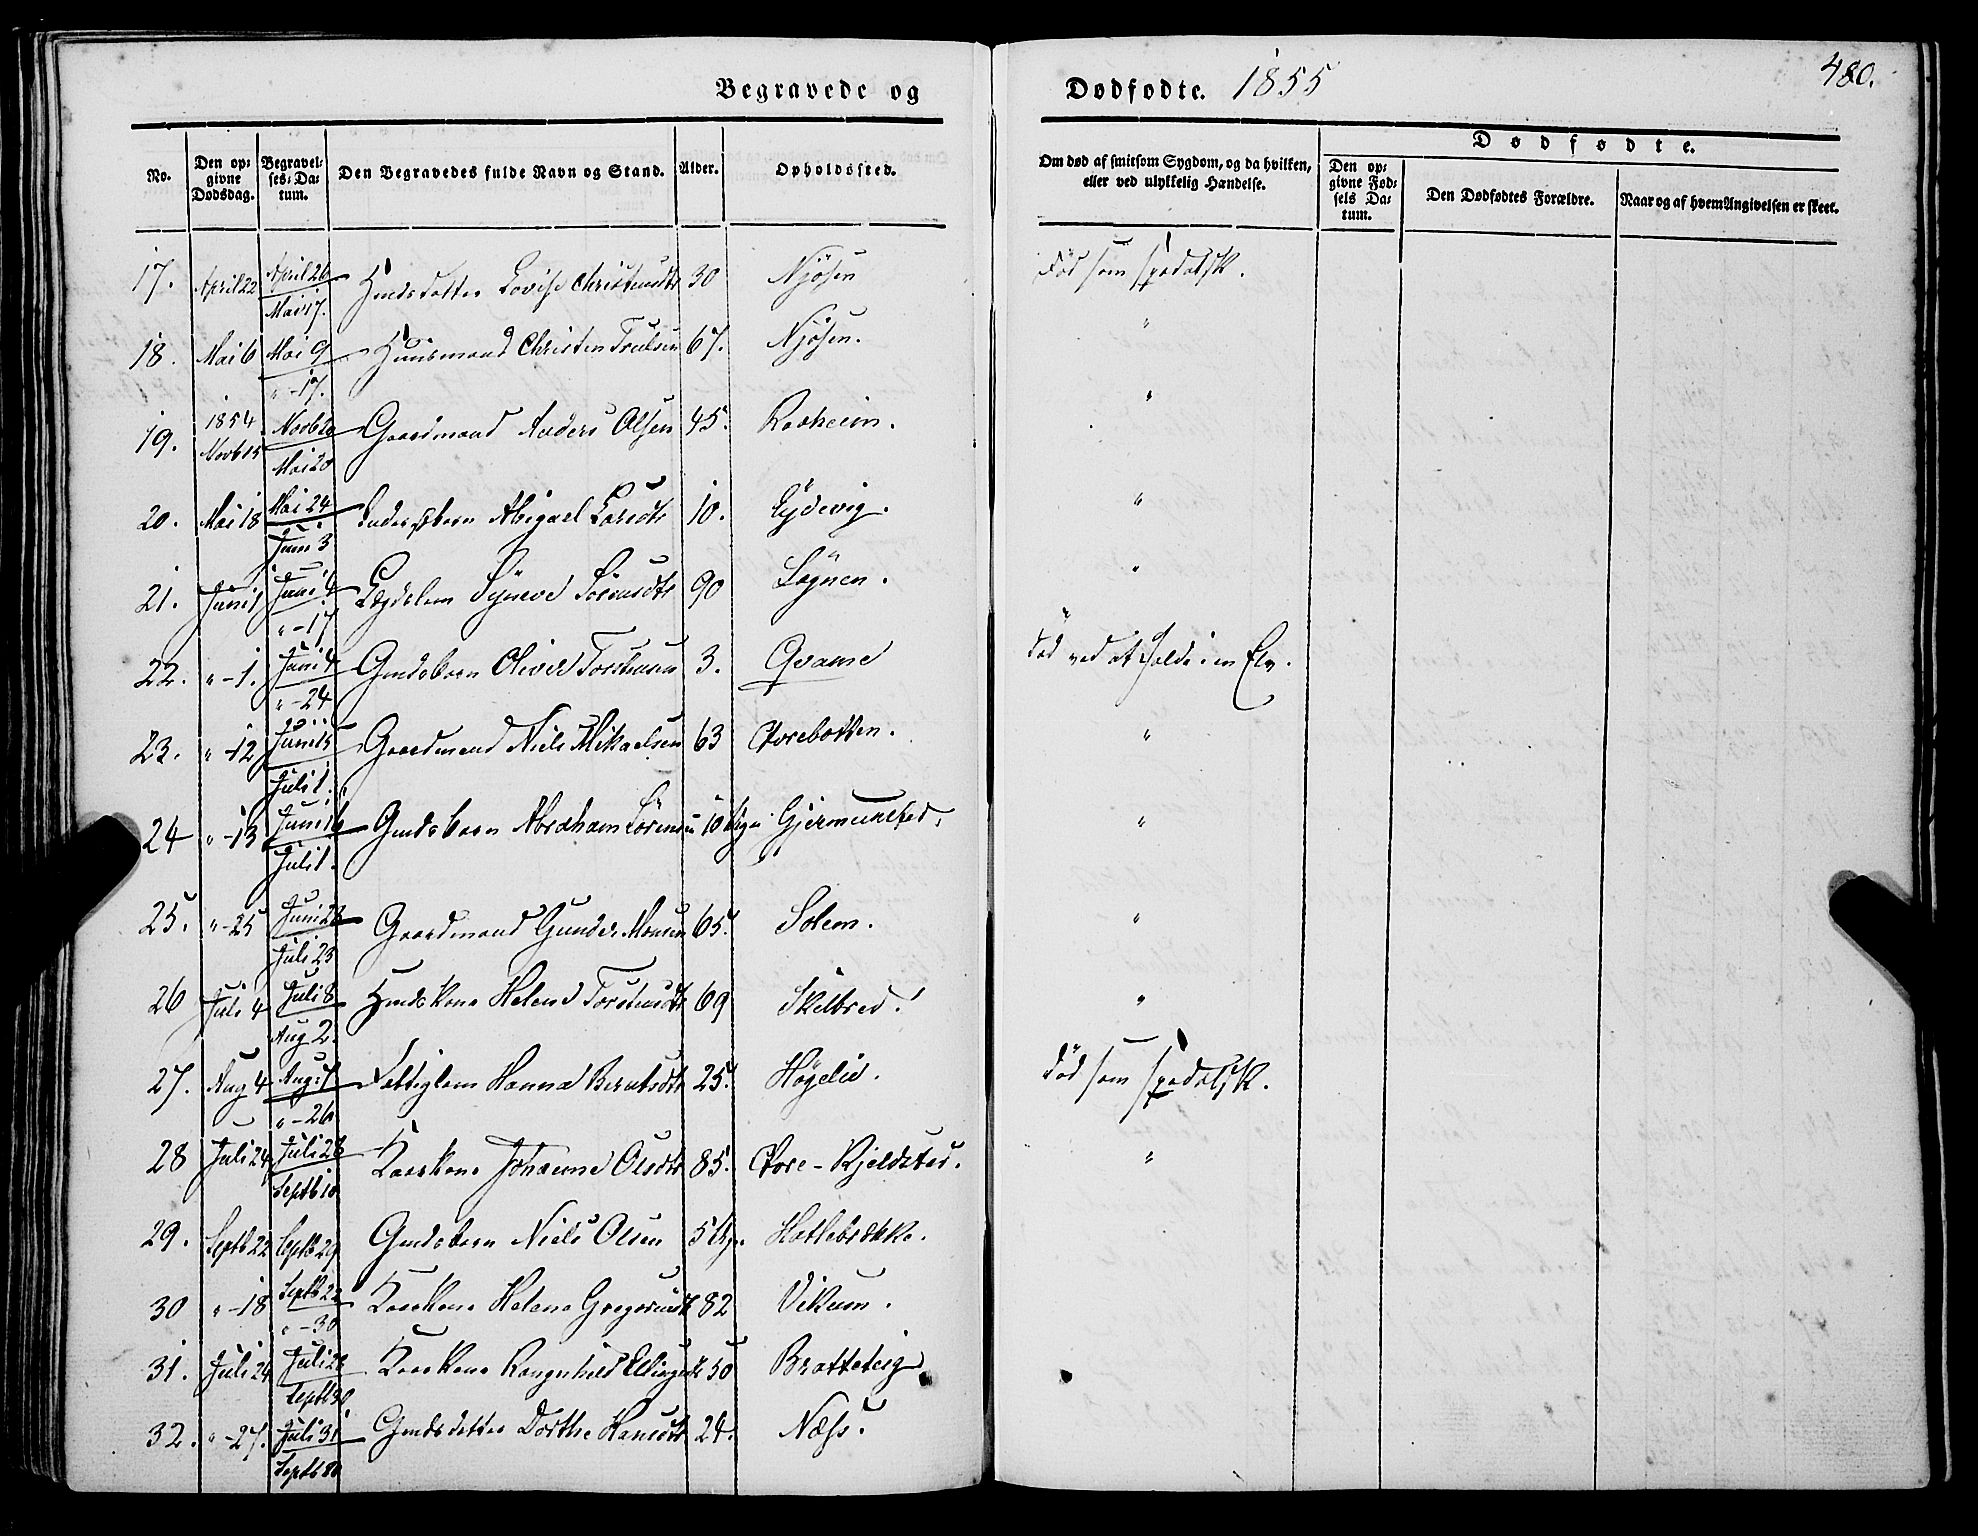 Begravede og Dødfødte. 1855 480.
No. Den opgivne Dødsdag. Begravelses-Datum. Den Begravedes fulde Navn og Stand. Alder. Opholdssted. Om død af smitsom Sygdom, og da hvilken, eller ved ulykkelig Hændelse. Dødfødte.
Den opgivne Fødsels Datum. Den Dødfødtes Forældre. Naar og af hvem Angivelsen er skeet.
17. April 22 April 26 Mai 17. Lovise Christensdtr 30 Njøsen Død som spedalsk.
18. Mai 6 Mai 9 " - 17. Huusmand Christen Truulsen 67. Njøsen. "
19. 1854 Novb 15 Novb 20 Mai 20 Gaardmand Anders Olsen 45. Roxheim. "
20. Mai 18 Mai 24 Juni 3 Abigael Larsdtr 10. "
21. Juni 1 Juni 6 " - 17 Lægdslem Synneve 90 Søgnen. "
22. " - 1. Juni 4 " - 24 Gmdsbarn Oliver Torstensen 3. Qvame Død ved at falde i en Elv.
23. " - 12 Juni 15 Juli 1. Gaardmand Niels Mikaelsen 63 Storebotten. "
24 " - 13 Juni 16 Juli 1. Gmdsbarn Abraham Sørensen 10 Gjermundsted. "
25. " - 25 Juni 28 Juli 23 Gaardmand Gunder Monsen 65. Solem. "
26 Juli 4 Juli 8 Aug 2. Hmdskone Helene Torstensdtr 69 Skelbred. "
27. Aug 4 Aug: 7 " - 26 Fattiglem Hanna Berntsdtr 25. Høgelid. Død som spedalsk.
28 Juli 24 Juli 28 Septb 10 Kaarkone Johanne Olsdtr 85. Store-Kjeldsted. "
29. Septb 22 Septb 29 Gmdsbarn Niels Olsen 5 Hatlebrække.
30 " - 18 Septb 22 " - 30 Kaarkone Helene Gregoriusdtr 82 Vikum.
31. Juli 24 Juli 28 Septb 30. Kaarkone Rangnhild Ellingsdtr 50 Bratteteig
32. " - 27. Juli 31 Septb 30 Gmdsdatter Dorthe Hansdtr 24. Næss.